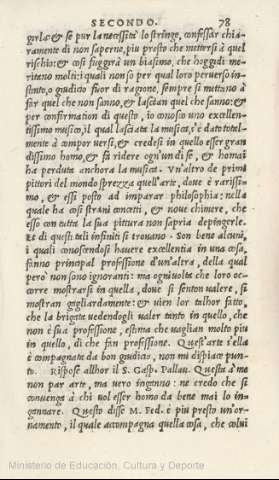 SECONDO. 78
girlæ: & se pur la necessità lo stringe, confessar chia-
ramente di non saperne, piu presto che mettersi à quel
rischio: & cosi fuggirà un biasimo, che hoggidi me-
ritano molti: i quali non so per qual loro peruerso in-
stinto, o giudicio fuor di ragione, sempre si mettono à
far quel che non sanno, & lasciano quel che sanno: &
per confirmation di questo, io conosco uno excellen-
tissimo musico, il qual lasciata la musica, s'è dato total-
mente à compor uersi, & credesi in quello esser gran
dissimo homo, & fà ridere ogn'un di se, & homai
ha perduta anchora la musica. Vn'altro de primi
pittori del mondo sprezza quell'arte, doue è rarissi-
mo, & essi posto ad imparar philosophia: nella
quale ha cosi strani concetti, & noue chimere, che
esso con tutta la sua pittura non sapria depingerle.
Et di questi tali infiniti si trouano. Son bene alcuni,
i quali conoscendosi hauere excellentia in una cosa,
fanno principal professione d'un'altra, della qual
però non sono ignoranti: ma ogniuolta che loro oc-
corre mostrarsi in quella, doue si senton ualere, si
mostran gagliardamente: & uien lor talhor fatto,
che la brigata uedendogli ualer tanto in quello, che
non è sua professione, estima che uaglian molto piu
in quello, di che fan professione. Quest'arte s'ella
è compagnata da bon giudicio, non mi dispiace pun-
to. Rispose allhor il S. Gasp. Pallau. Questa à me
non par arte, ma uero inganno: ne credo che si
conuenga à chi uol esser homo da bene mai lo in-
gannare. Questo disse M. Fed. è piu presto un'or-
namento, il quale accompagna quella cosa, che colui
Ministerio de Educación, Cultura y Deporte